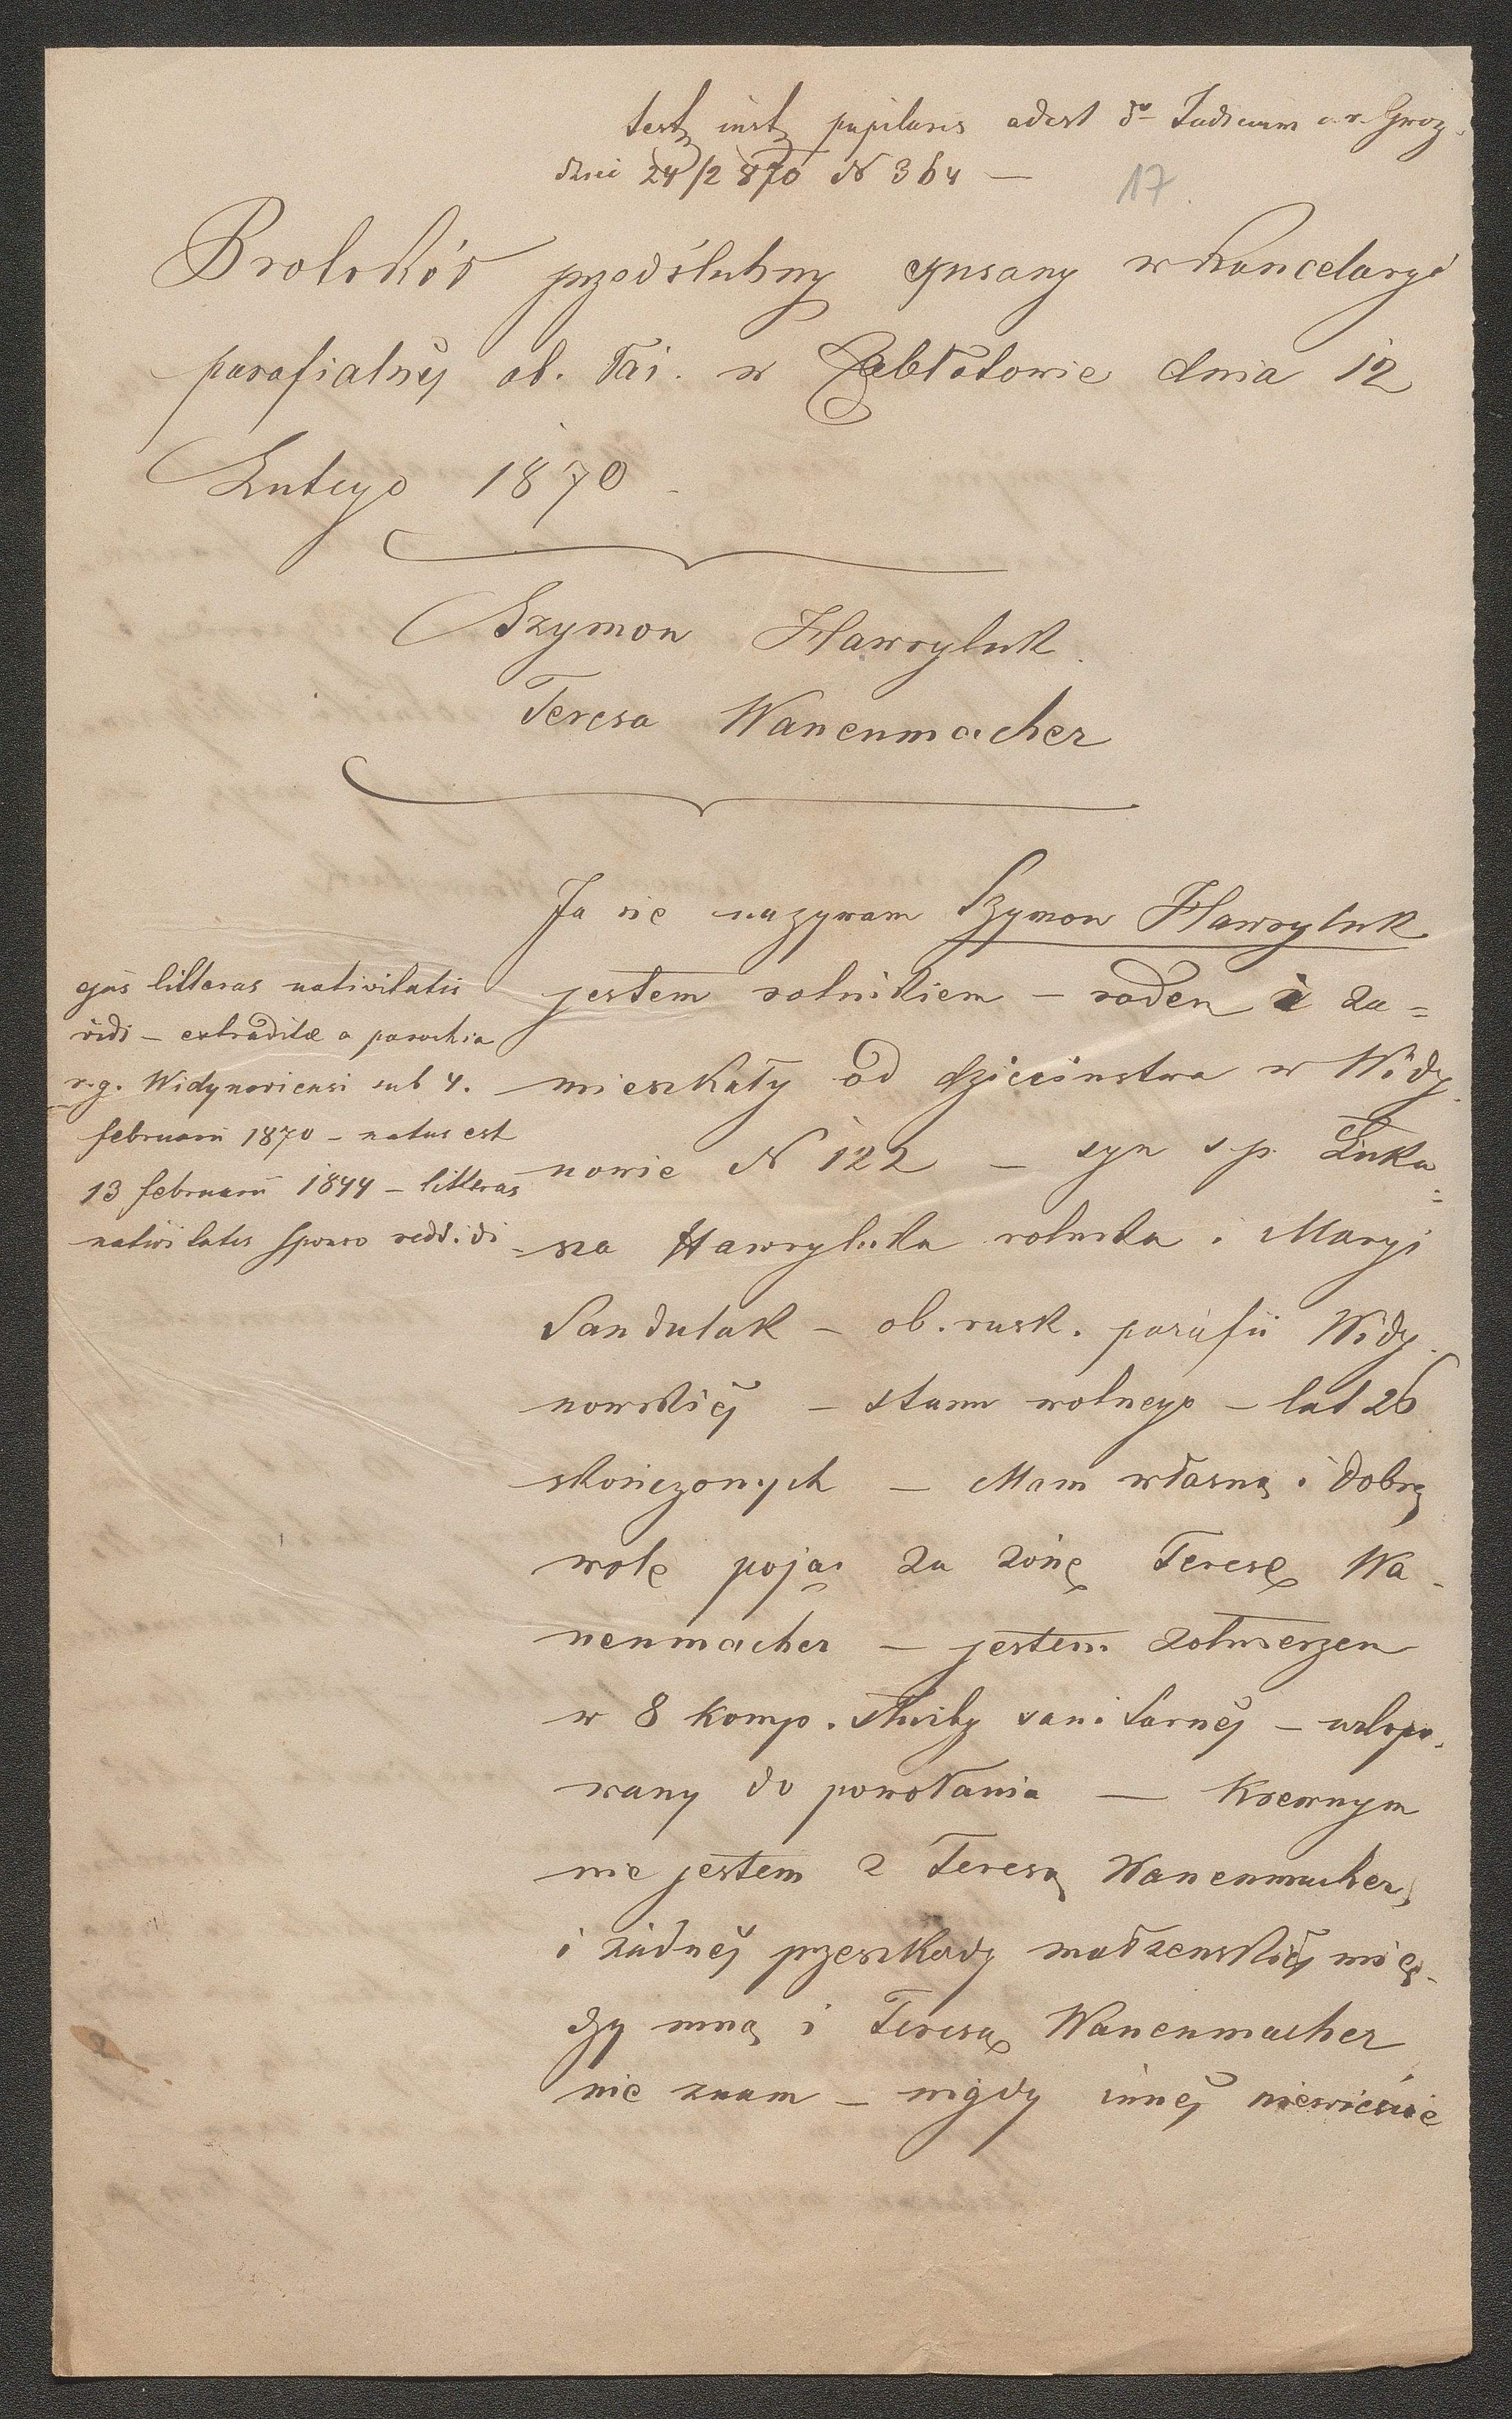 test inst pupilaris adest d° Judicium c. r. Gwoz-
dziec 24/2 870 N 364 —
17.
Protokół przedślubny spisany w Kancelaryi
parafialnéj ob. łać. w Zabłotowie dnia 12
Lutego 1870 –
Szymon Hawryluk.
Teresa Wanenmacher
Ja się nazywam Szymon Hawryluk
jestem rolnikiem – rodem i za=
mieszkały od dzieciństwa w Widy-
nowie N 122 – syn s.p. Łuka=
sza Hawryluka rolnika i Maryi
Sandulak – ob. rusk. parafii Widy-
nowskiéj – stanu wolnego – lat 26
skończonych – Mam własną i dobrą
wolę pojąć za żonę Teresę Wa-
nenmacher – jestem żołnierzem
w 8 komp. służby sanitarnéj – urlopo-
wany do powołania — Krewnym
nie jestem z Teresą Wanenmacher,
i żadnéj przeszkody małżeńskiéj mię-
dzy mną i Teresą Wanenmacher
nie znam – nigdy innéj niewieście
ejus litteras nativitatis
vidi – extraditæ a parochia
r. g. Widynoviensi sub 4.
februarii 1870 – natus est
13 februarii 1844 – litteras
nativitatis sponso reddidi